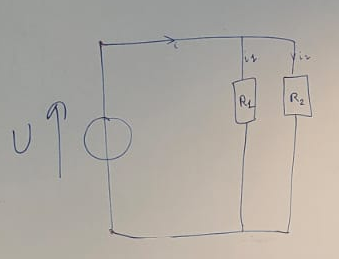 i
i1
i2
R1
R2
U